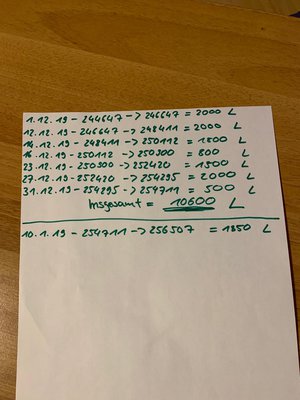 1.12.19 - 244647 -> 246647 = 2000 L
12.12.19 - 246647 -> 248411 = 2000 L
14.12.19 - 248411 -> 250112 = 1800 L
16.12.19 - 250112 -> 250900 = 800 L
23.12.19 - 250900 -> 252420 = 1500 L
27.12.19 - 252420 -> 254295 = 2000 L
31.12.19 - 254295 -> 254711 = 500 L
Insgesamt = 10600 L
10.1.19 - 254711 -> 256507 = 1850 L